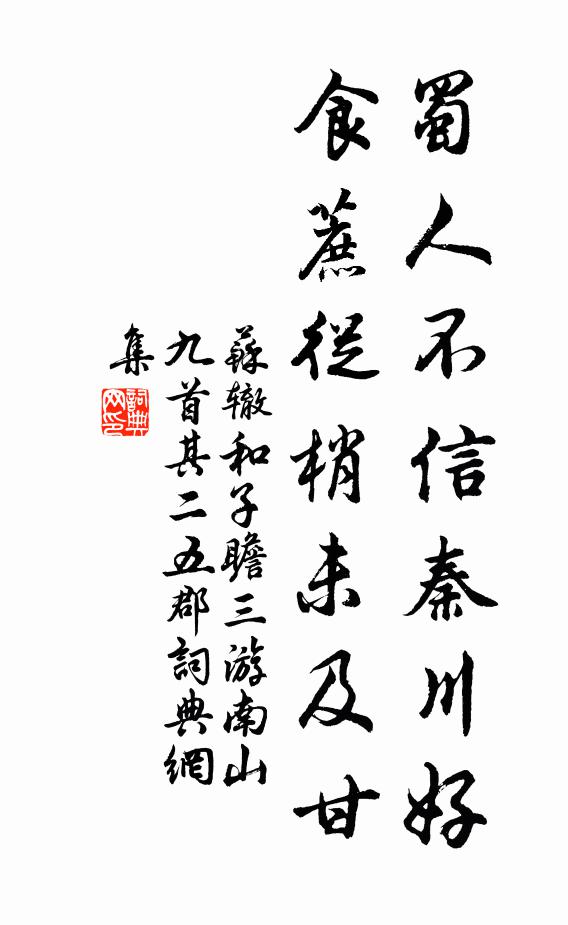 蜀人不信秦川好
食蔗從梢未及甘
蘇轍和子瞻三游南山
九首其二五郡詞典網
集
詞典
网印